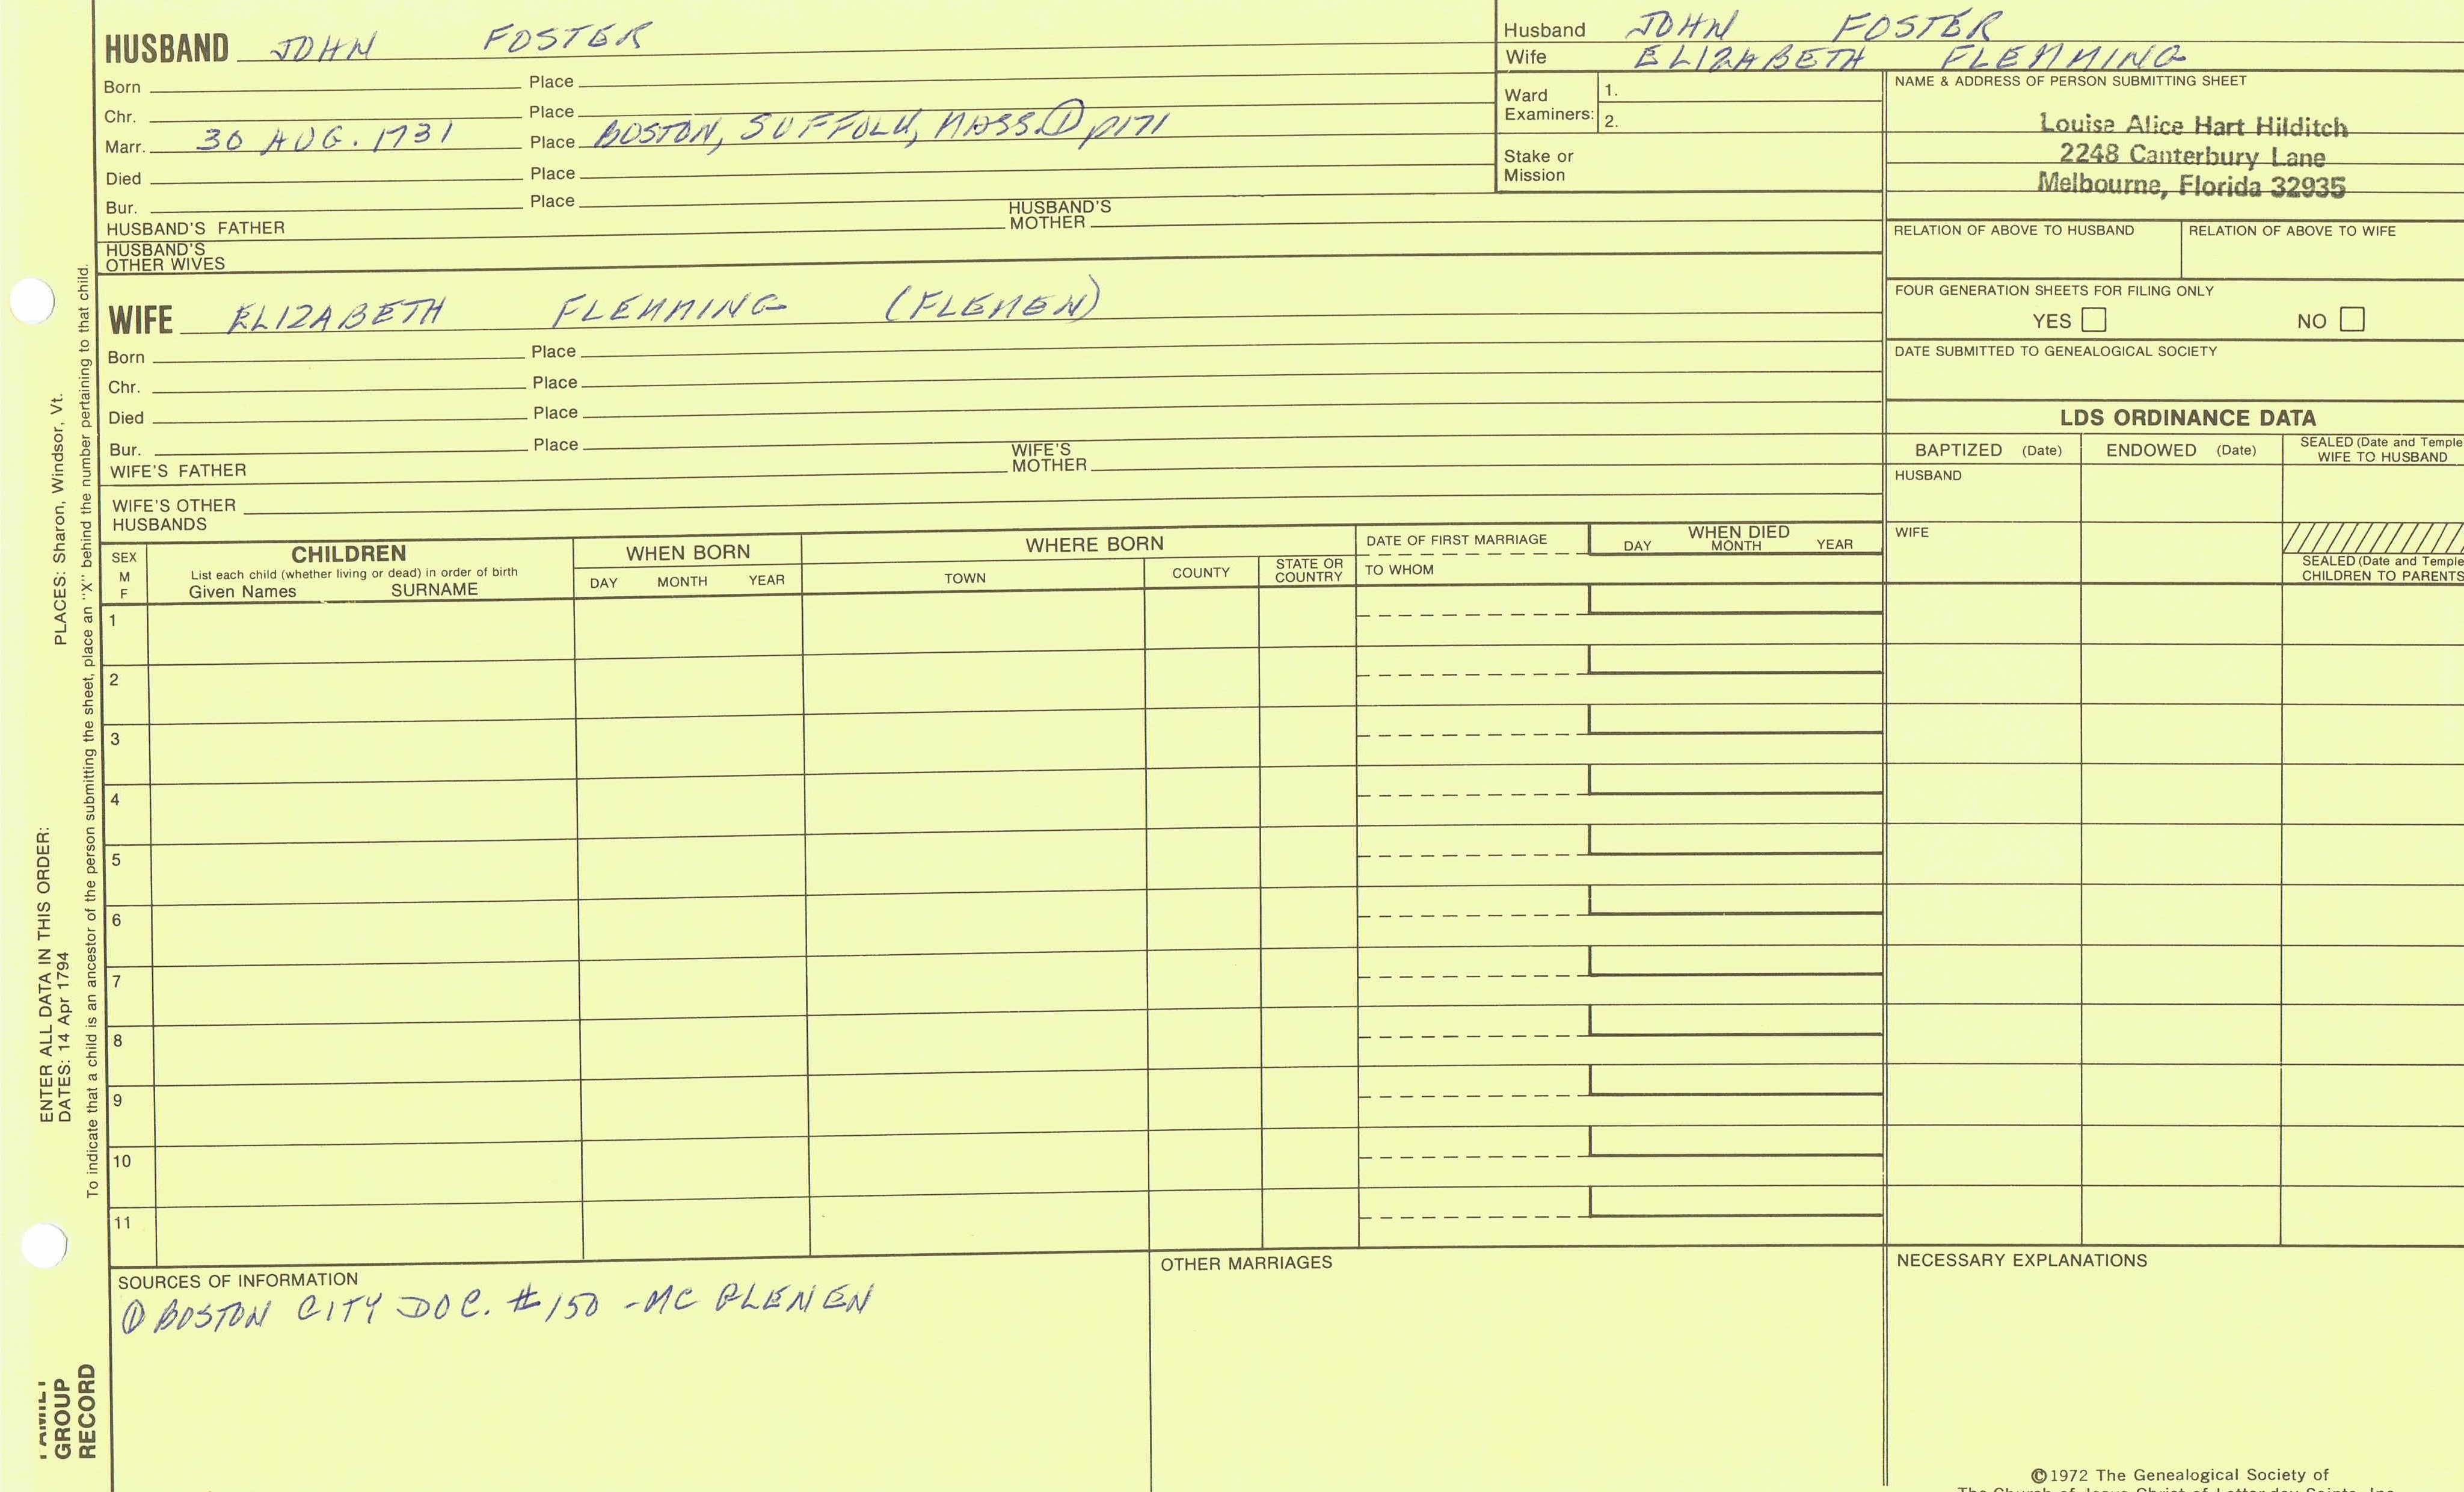 HUSBAND JOHN FOSTER
Born Place
Chr. Place
Marr. 30 AUG. 1731 Place BOSTON, SUFFOLK, MASS. ① p171
Died Place
Bur. Place
HUSBAND'S FATHER HUSBAND'S MOTHER
HUSBAND'S OTHER WIVES
WIFE ELIZABETH FLEMMING (FLEMEN)
Born Place
Chr. Place
Died Place
Bur. Place
WIFE'S FATHER WIFE'S MOTHER
WIFE'S OTHER HUSBANDS
Husband JOHN FOSTER
Wife ELIZABETH FLEMMING
Ward Examiners: 1.
2.
Stake or Mission
NAME & ADDRESS OF PERSON SUBMITTING SHEET
Louise Alice Hart Hilditch
2248 Canterbury Lane
Melbourne, Florida 32935
RELATION OF ABOVE TO HUSBAND RELATION OF ABOVE TO WIFE
FOUR GENERATION SHEETS FOR FILING ONLY
YES NO
DATE SUBMITTED TO GENEALOGICAL SOCIETY
LDS ORDINANCE DATA
BAPTIZED (Date) ENDOWED (Date) SEALED (Date and Temple
WIFE TO HUSBAND
HUSBAND
WIFE
SEALED (Date and Temple
CHILDREN TO PARENTS
SEX
M
F
CHILDREN
List each child (whether living or dead) in order of birth
Given Names SURNAME
WHEN BORN
DAY MONTH YEAR
WHERE BORN
TOWN COUNTY STATE OR COUNTRY
DATE OF FIRST MARRIAGE
TO WHOM
WHEN DIED
DAY MONTH YEAR
1
2
3
4
5
6
7
8
9
10
11
SOURCES OF INFORMATION
① BOSTON CITY DOC. #150 - MC
OTHER MARRIAGES
NECESSARY EXPLANATIONS
©1972 The Genealogical Society of
The Church of Jesus Christ of Latter-day Saints, Inc.
ENTER ALL DATA IN THIS ORDER:
DATES: 14 Apr 1794 PLACES: Sharon, Windsor, Vt.
To indicate that a child is an ancestor of the person submitting the sheet, place an "X" behind the number pertaining to that child.
FAMILY
GROUP
RECORD